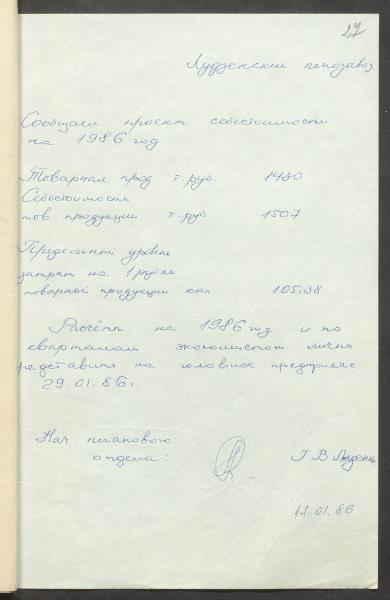 27
Лудзенский попозавод
Сообщаем проект себестоимости
на 1986 год.
Товарная прод т.руб. 1430
Себестоимость
тов. продукции т.руб 1507
Предельный уровень
затрат на 1 рубль
товарной продукции коп 105,38
Расчёт на 1986 год и по
кварталам экономистам лично
редставить на головное предприятие
29.01.86г.
Нач. планового
отдела:
Г В
11.01.86